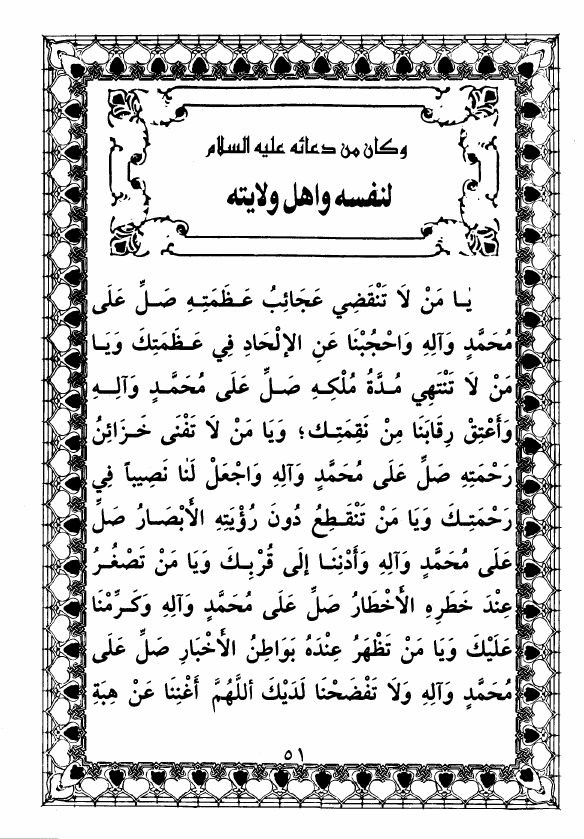 وكان من دعائه عليه السلام
لنفسه واهل ولايته
يٰا مَنْ لاَ تَنْقَضِي عَجَائِبُ عَظَمَتِهِ صَلِّ عَلَى
مُحَمَّدٍ وَآلِهِ وَاحْجُبْنَا عَنِ الإلْحَادِ فِي عَظَمَتِكَ وَيَا
مَنْ لاَ تَنْتَهِي مُدَّةُ مُلْكِهِ صَلِّ عَلَى مُحَمَّدٍ وَآلِهِ
وَأَعْتِقْ رِقَابَنَا مِنْ نَقِمَتِكَ؛ وَيَا مَنْ لاَ تَفْنَى خَزَائِنُ
رَحْمَتِهِ صَلِّ عَلَى مُحَمَّدٍ وَآلِهِ وَاجْعَلْ لَنا نَصِيباً فِي
رَحْمَتِكَ وَيَا مَنْ تَنْقَطِعُ دُونَ رُؤْيَتِهِ الأَبْصَارُ صَلِّ
عَلَى مُحَمَّدٍ وَآلِهِ وَأَدْنِنَا إلَى قُرْبِكَ وَيَا مَنْ تَصْغُرُ
عِنْدَ خَطَرِهِ الأَخْطَارُ صَلِّ عَلَى مُحَمَّدٍ وَآلِهِ وَكَرِّمْنَا
عَلَيْكَ وَيَا مَنْ تَظْهَرُ عِنْدَهُ بَوَاطِنُ الأَخْبَارِ صَلِّ عَلَى
مُحَمَّدٍ وَآلِهِ وَلاَ تَفْضَحْنَا لَدَيْكَ أللَّهُمَّ أَغْنِنَا عَنْ هِبَةِ
٥١